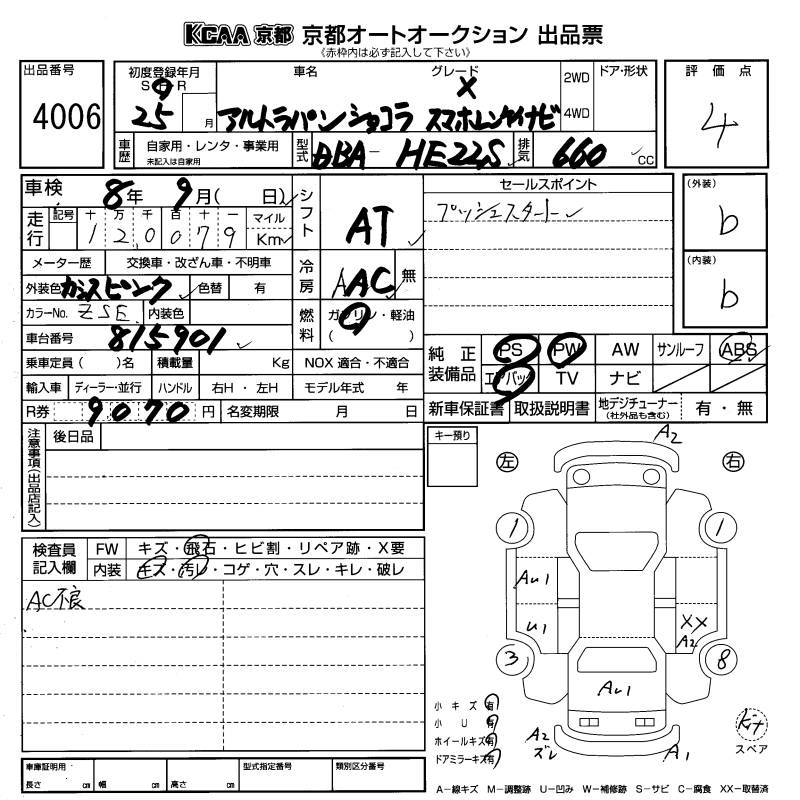 KCAA 京都 京都オートオークション 出品票
《赤枠内は必ず記入して下さい》
出品番号
4006
初度登録年月
S・H・R
25 月
車名
グレード
X
アルトラパンショコラ スマホレンケイナビ
2WD
4WD
ドア・形状
評価点
4
車歴
自家用・レンタ・事業用
未記入は自家用
型式
DBA-HE22S
排気
660 CC
車検
8年 9月( 日)
走行
記号 十 万 千 百 十 一 マイル
1 2 0 0 7 9 Km
メーター歴 交換車・改ざん車・不明車
外装色 カシスピンク 色替 有
カラーNo. ZSE 内装色
車台番号 815901
乗車定員( )名 積載量 Kg
輸入車 ディーラー・並行 ハンドル 右H・左H
R券 9070 円 名変期限 月 日
シフト
AT
冷房
AAC 無
燃料
ガソリン・軽油
( )
NOX 適合・不適合
モデル年式 年
セールスポイント
プッシュスタート
(外装)
b
(内装)
b
純正装備品
PS PW AW サンルーフ ABS
エアバッグ TV ナビ
新車保証書 取扱説明書 地デジチューナー
(社外品も含む) 有・無
注意事項(出品店記入)
後日品
キー預り
検査員記入欄
FW キズ・飛石・ヒビ割・リペア跡・X要
内装 キズ・汚レ・コゲ・穴・スレ・キレ・破レ
AC不良
左
右
A2
1
1
AU1
U1
XX
A2
3
8
AU1
A2
ズレ
A1
小キズ 有
小U 有
ホイールキズ 有
ドアミラーキズ 有
Kit
スペア
車庫証明用
長さ cm 幅 cm 高さ cm
型式指定番号
類別区分番号
A-線キズ M-調整跡 U-凹み W-補修跡 S-サビ C-腐食 XX-取替済